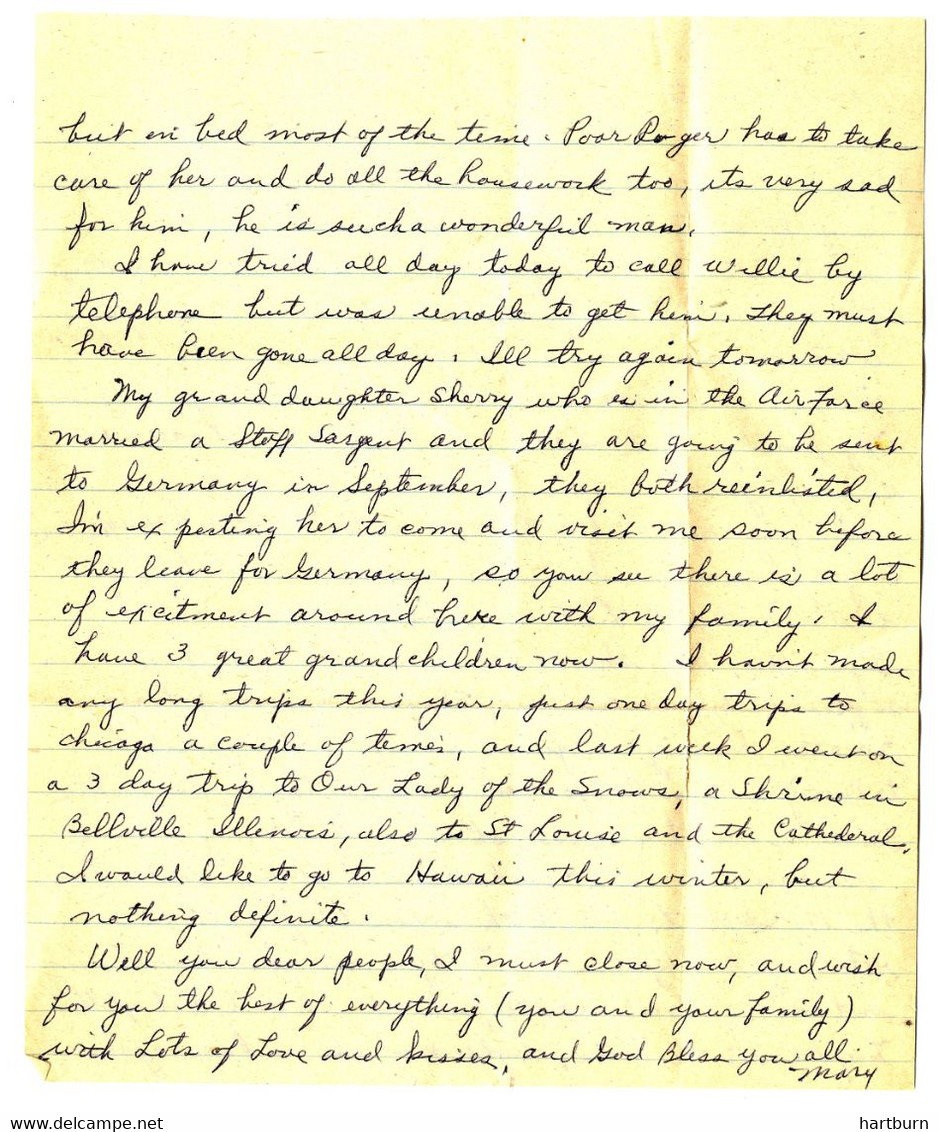 but in bed most of the time. Poor Roger has to take
care of her and do all the housework too, its very sad
for him, he is such a wonderful man.
I have tried all day today to call Willie by
telephone but was unable to get him. They must
have been gone all day. Ill try again tomorrow
My granddaughter Sherry who is in the Air Force
married a Staff Sargent and they are going to be sent
to Germany in September, they both reinlisted,
I'm expecting her to come and visit me soon before
they leave for Germany, so you see there is a lot
of excitment around here with my family. I
have 3 great grandchildren now. I havn't made
any long trips this year, just one day trips to
chicago a couple of times, and last week I went on
a 3 day trip to Our Lady of the Snows, a Shrine in
Bellville Illinois, also to St Louise and the Cathederal,
I would like to go to Hawaii this winter, but
nothing definite.
Well you dear people, I must close now, and wish
for you the best of everything (you and your family)
with Lots of Love and kisses, and God Bless you all.
Mary
www.delcampe.net
hartburn